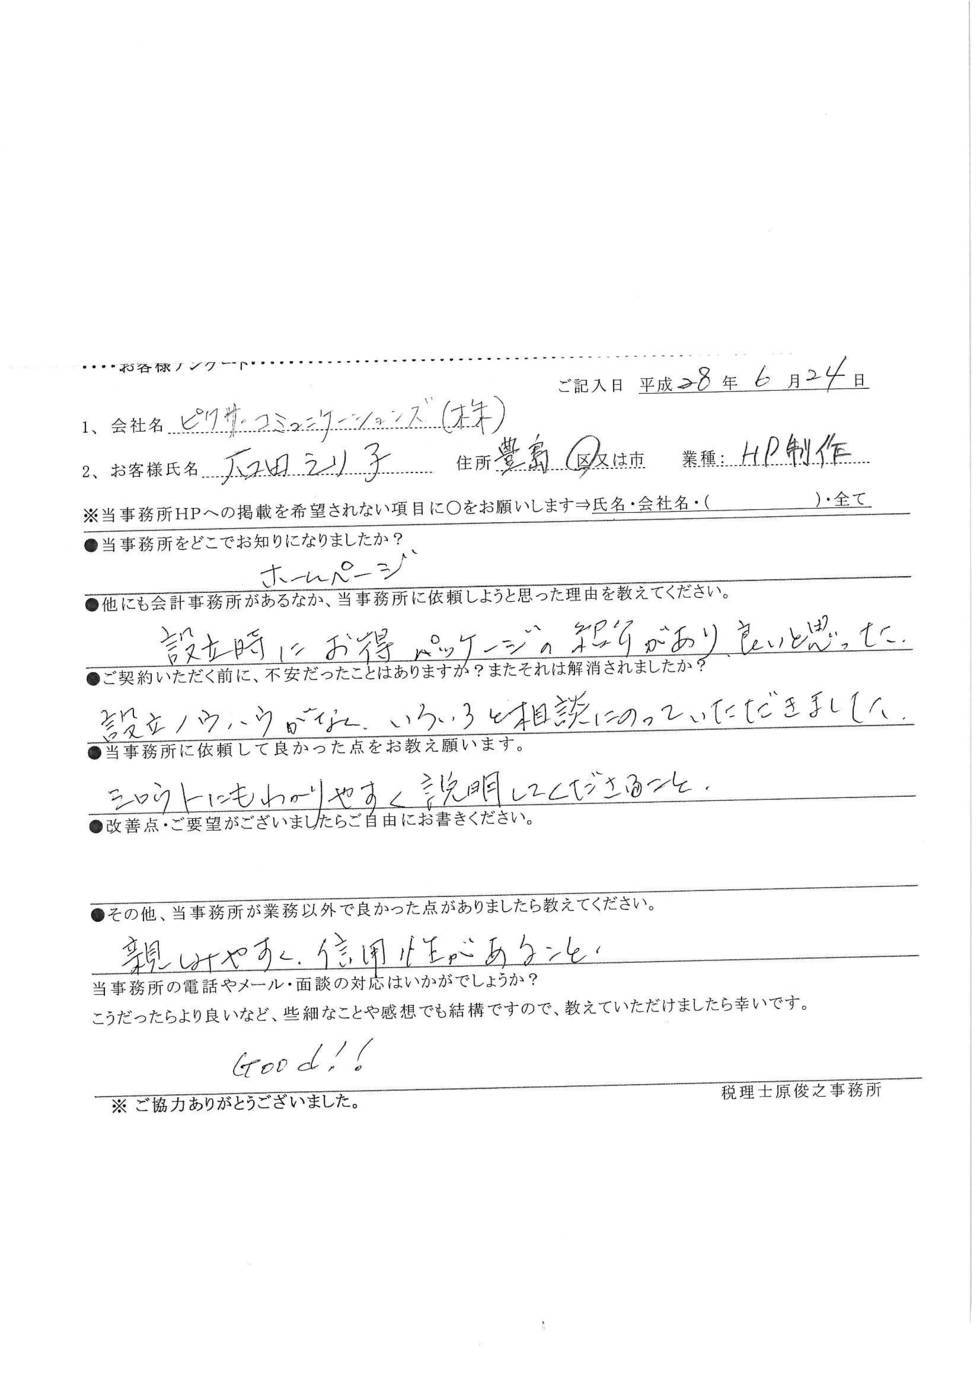 ‥‥お客様アンケート‥‥‥‥‥‥‥‥‥‥‥‥‥‥‥‥‥‥
ご記入日 平成28年 6月24日
1、会社名 ピクサーコミュニケーションズ(株)
2、お客様氏名 石田えり子 住所 豊島 区又は市 業種: HP制作
※当事務所HPへの掲載を希望されない項目に〇をお願いします⇒氏名・会社名・( )・全て
●当事務所をどこでお知りになりましたか?
ホームページ
●他にも会計事務所があるなか、当事務所に依頼しようと思った理由を教えてください。
設立時にお得パッケージの紹介があり、良いと思った。
●ご契約いただく前に、不安だったことはありますか?またそれは解消されましたか?
設立ノウハウがなく、いろいろと相談にのっていただきました。
●当事務所に依頼して良かった点をお教え願います。
シロウトにもわかりやすく説明してくださること。
●改善点・ご要望がございましたらご自由にお書きください。
●その他、当事務所が業務以外で良かった点がありましたら教えてください。
親しみやすく、信用性があること。
当事務所の電話やメール・面談の対応はいかがでしょうか?
こうだったらより良いなど、些細なことや感想でも結構ですので、教えていただけましたら幸いです。
Good!!
※ ご協力ありがとうございました。 税理士原俊之事務所